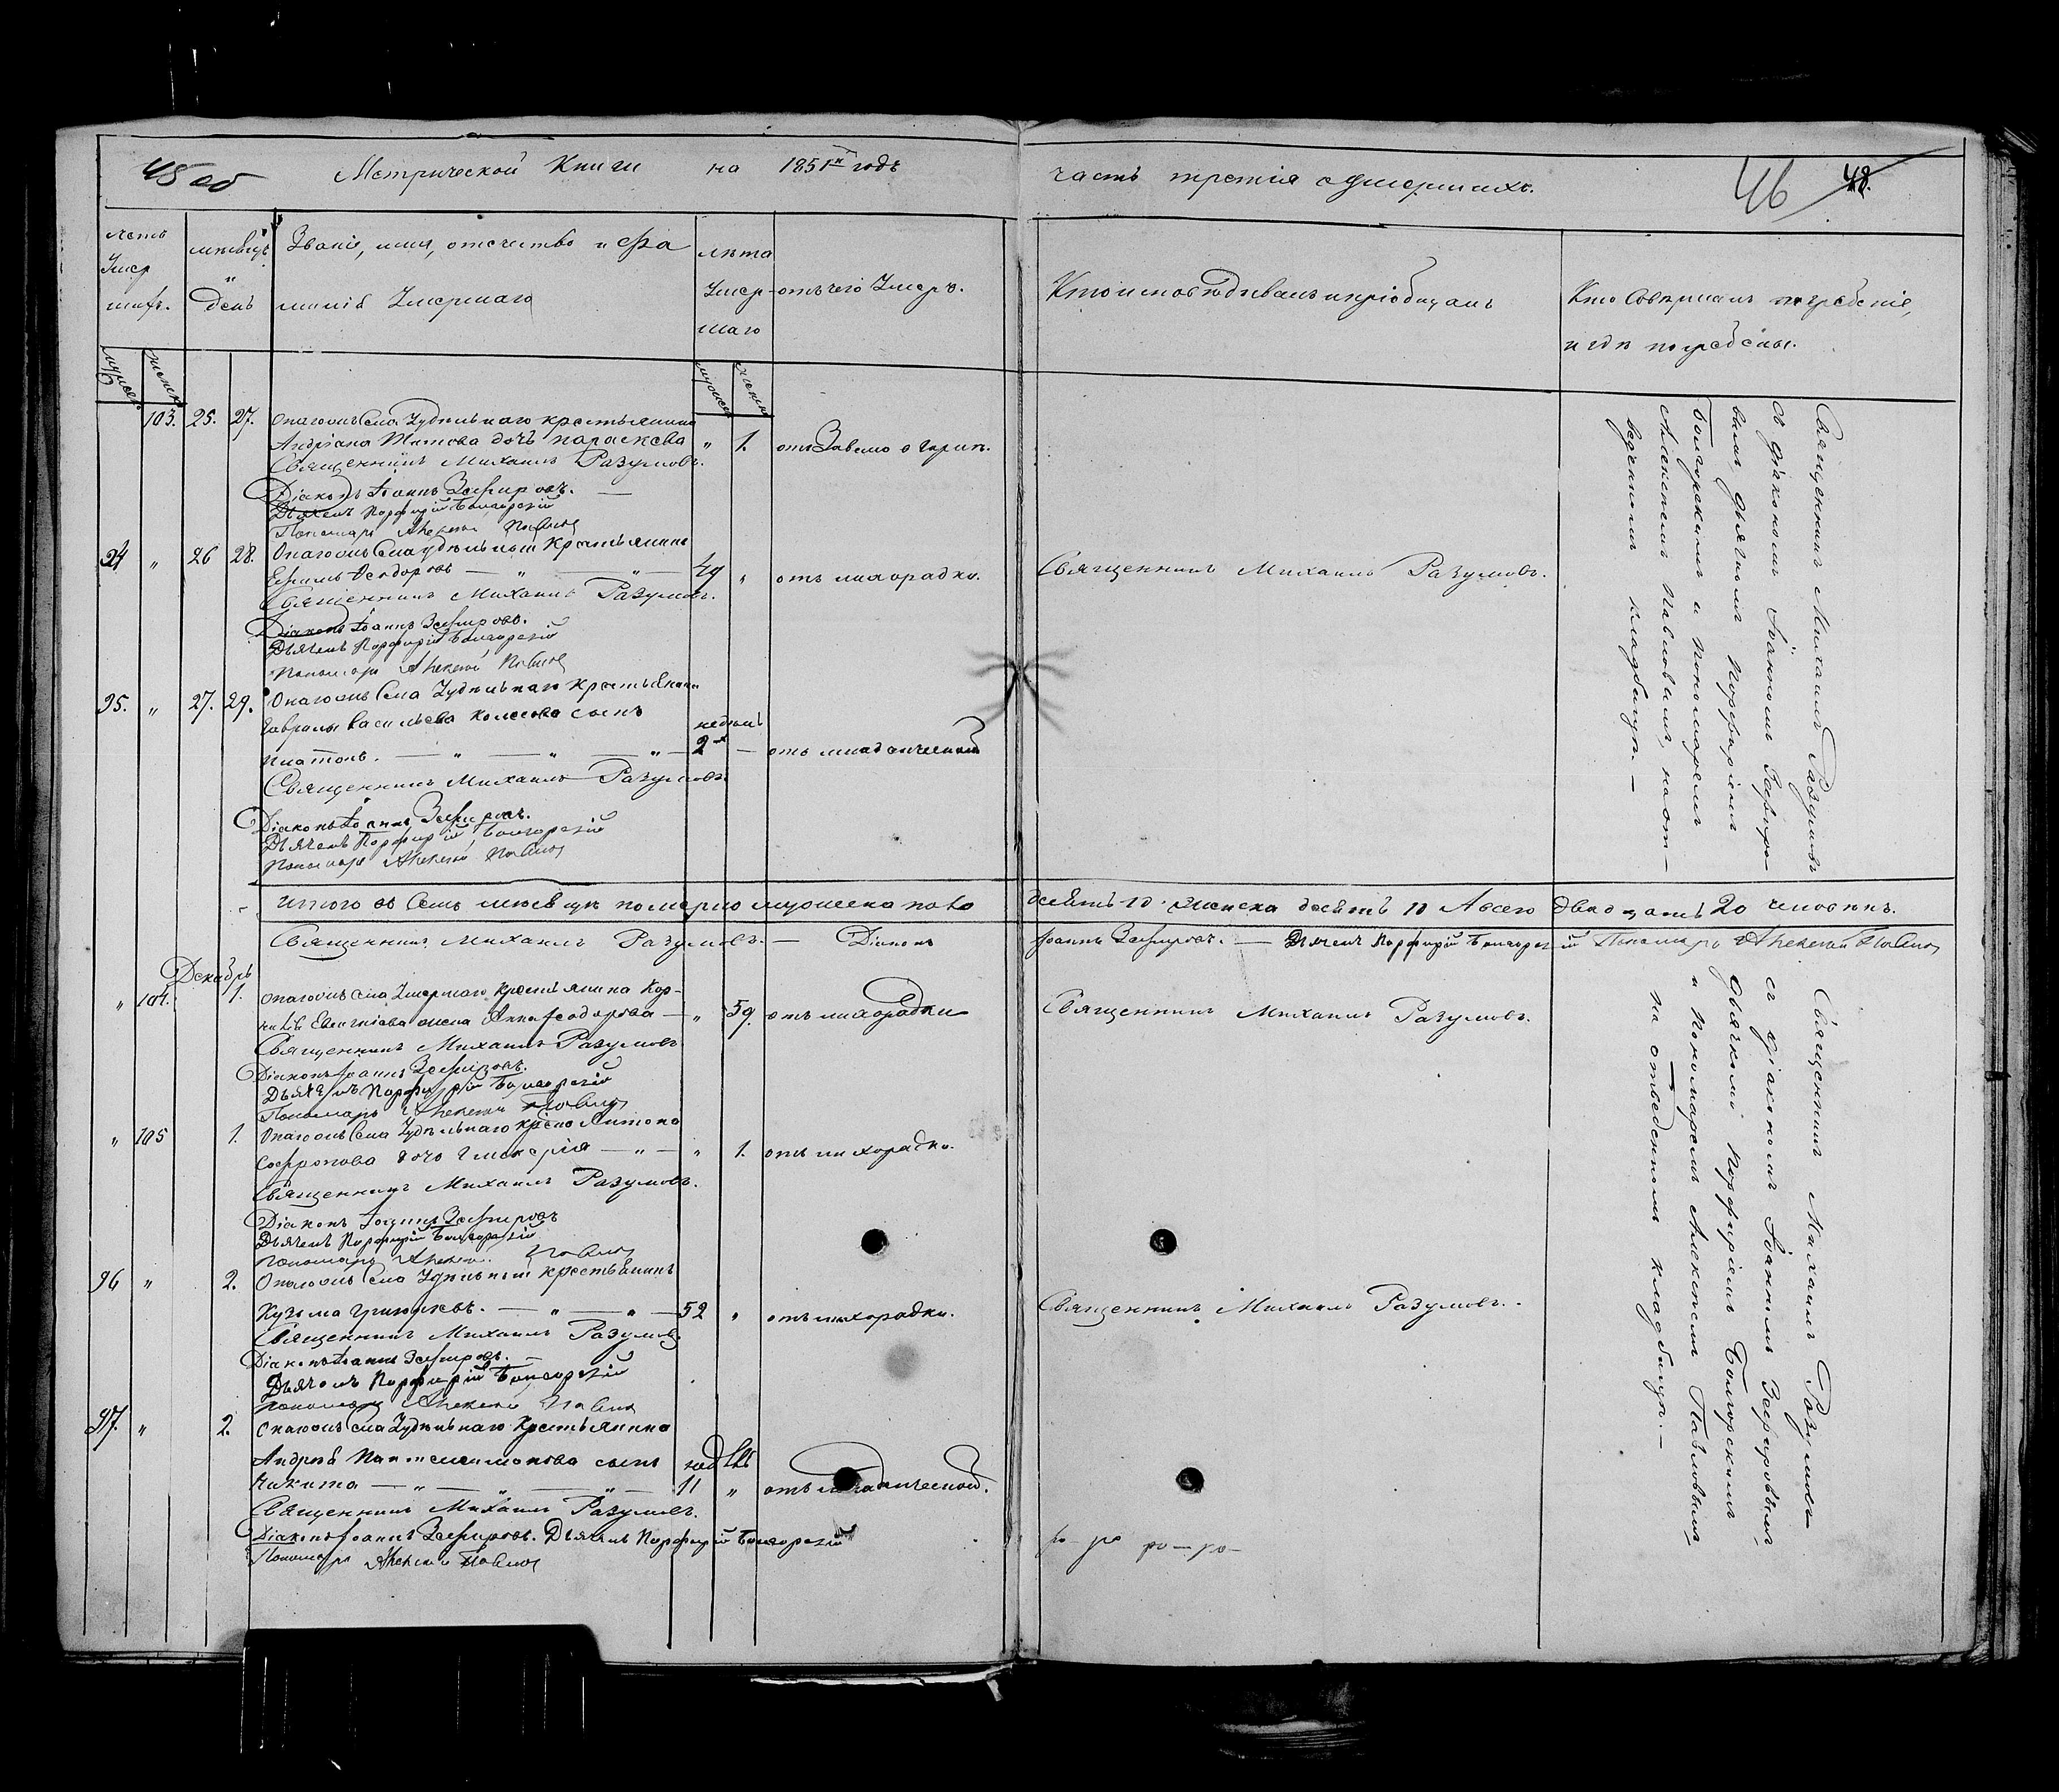 45 об
Метрической Книги на 1851й годъ
часть третія о умершихъ.
46
48.
Умер
шихъ.
мѣсяцъ
и
День
Званіе, имя, отечество и Фа
миліѣ Умершаго
лѣта
Умер-
шаго
отъ чего Умеръ.
Кто исповѣдывалъ и пріобщалъ
Кто Совершалъ погребеніе,
и гдѣ погребены.
103. 25. 27. Села Удѣльнаго крестьянина
Андріана Титова дочь параскева „ 1. отъ
Священникъ Михаилъ Разумовъ.
Діаконъ Іоаннъ Зефировъ. —
Дьячекъ Порфирій Болгорскій
Пономарь Алексѣй Павлов
94 „ 26 28. Села удѣльный Крестьянинъ
Ефимъ Ѳеодоровъ — „ — 49 „ отъ лихорадки. Священникъ Михаилъ Разумовъ.
Священникъ Михаилъ Разумовъ.
Діаконъ Іоаннъ Зефировъ.
Дьячекъ Порфирій Болгорскій
Пономарь Алексѣй Павлов
95. „ 27. 29. Села Удѣльнаго Крестьянина
Гаврилы Васильева сынъ недѣль
Платонъ. — „ — „ — „ — 2 — отъ младенческой
Священникъ Михаилъ Разумовъ
Діаконъ Іоаннъ Зефировъ.
Дьячекъ Порфирій Болгорскій
Пономарь Алексѣй Павлов
Священникъ Михаилъ Разумовъ
съ діакономъ Іоанномъ Зефиро-
вымъ дьячкомъ Порфиріемъ
Болгорскимъ и Пономаремъ
Алексѣемъ Павловымъ, на от-
веденномъ кладбищѣ. —
Итого въ Семъ мѣсяцѣ померло мужеска пола десять 10. Женска десять 10 А всего двадцать 20 человѣкъ.
Священникъ Михаилъ Разумовъ. — Діаконъ Іоаннъ Зефировъ. — Дьячекъ Порфирій Болгорскій Пономарь Алексѣй Павлов
Декабрь
„ 104. 1. Села Умершаго Крестьянина Кор-
нилѣ Евстигнѣева жена Анна Ѳеодорова — „ 59. отъ лихорадки Священникъ Михаилъ Разумовъ.
Священникъ Михаилъ Разумовъ
Діаконъ Іоаннъ Зефировъ.
Дьячекъ Порфирій Болгорскій
Пономарь Алексѣй Павлов
„ 105 1. Села Удѣльнаго Антона
Софронова дочь Гликерія — „ — „ 1. отъ лихорадки.
Священникъ Михаилъ Разумовъ.
Діаконъ Іоаннъ Зефировъ
Дьячекъ Порфирій Болгорскій
Пономарь Алексѣй Павлов
96 „ 2. Села Удѣльный крестьянинъ
Кузьма Григорьевъ. — „ — „ — 52 „ отъ лихорадки. Священникъ Михаилъ Разумовъ.
Священникъ Михаилъ Разумовъ
Діаконъ Іоаннъ Зефировъ. —
Дьячекъ Порфирій Болгорскій
Пономарь Алексѣй Павлов
97. „ 2. Села Удѣльнаго Крестьянина
Андрея сынъ недѣль
Никита — „ — „ — „ — 11 „ отъ младенческой.
Священникъ Михаилъ Разумовъ.
Діаконъ Іоаннъ Зефировъ. Дьячекъ Порфирій Болгорскій
Пономарь Алексѣй Павлов
Священникъ Михаилъ Разумовъ
съ діакономъ Іоанномъ Зефировымъ,
дьячкомъ Порфиріемъ Болгорскимъ
и Пономаремъ Алексѣемъ Павловымъ,
на отведенномъ кладбищѣ. —